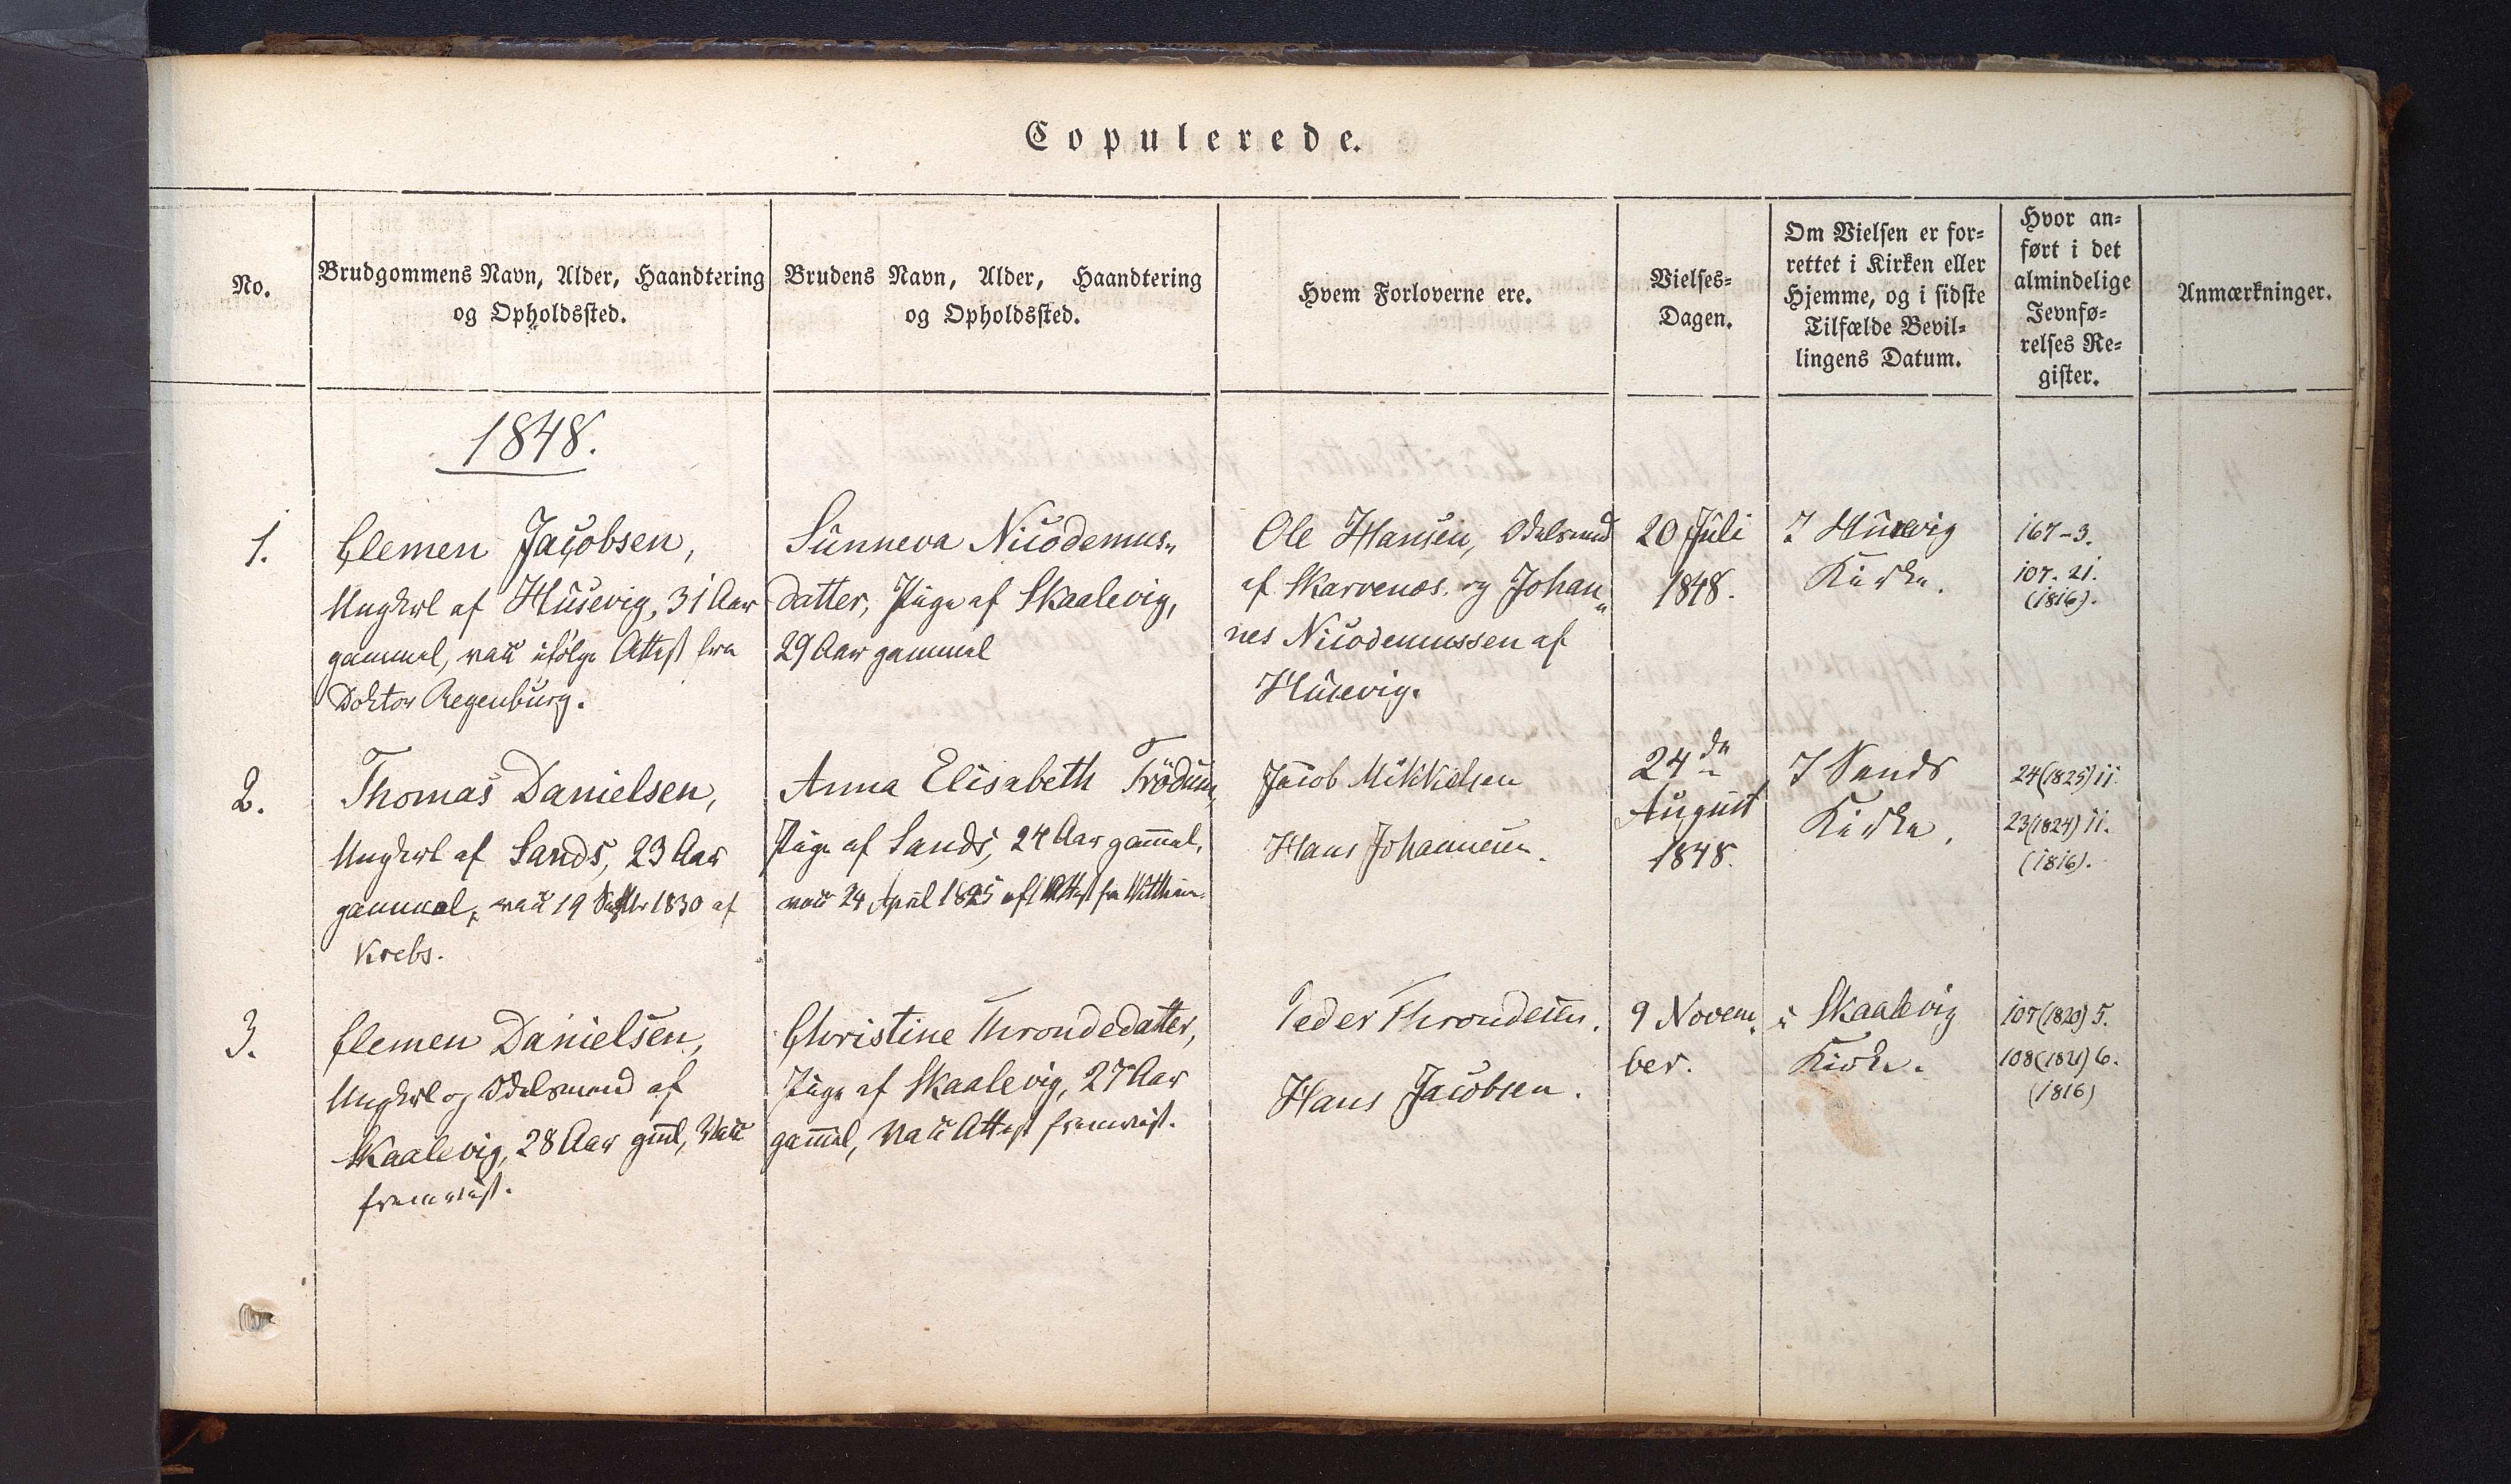 Copulerede.
No.
Brudgommens Navn, Alder, Haandtering
og Opholdssted.
Brudens Navn, Alder, Haandtering
og Opholdssted.
Hvem Forloverne ere.
Vielses-
Dagen.
Om Vielsen er for-
rettet i Kirken eller
Hjemme, og i sidste
Tilfælde Bevil-
lingens Datum.
Hvor an-
ført i det
almindelige
Jevnfø-
relses Re-
gister.
Anmærkninger.
1848.
1.
Clemen Jacobsen,
Ungkarl af Húsevig, 31 Aar
gammel, vacc ifölge Attest fra
Doktor Regenburg.
Sunneva Nicodemus„
datter, Pige af Skaalevig,
29 Aar gammel
Ole Hansen, Odelsmand
af Skarvenæs. og Johan„
nes Nicodemussen af
Húsevig.
20 Juli
1848.
I Húsevig
Kirke.
167-3.
107. 21.
(1816).
2.
Thomas Danielsen,
Ungkarl af Sands, 23 Aar
gammel, vacc 19 Septbr 1830 af
Krebs.
Anna Elisabeth Trödum,
Pige af Sands, 24 Aar gammel,
vacc 24 April 1825 Attest fra
Jacob Mikkelsen
Hans Johannesen.
24de
August
1848.
I Sands
Kirke.
24(1825) 11.
23(1824) 11.
(1816).
3.
Clemen Danielsen,
Ungkarl og Odelsmand af
Skaalevig, 28 Aar gml, Vacc
fremvist.
Christine Throndedatter,
Pige af Skaalevig, 27 Aar
gammel, Vacc Attest fremvist.
Peder Throndesen.
Hans Jacobsen.
9 Novem„
ber.
i Skaalevig
Kirke.
107(1820) 5.
108(1821) 6.
(1816)